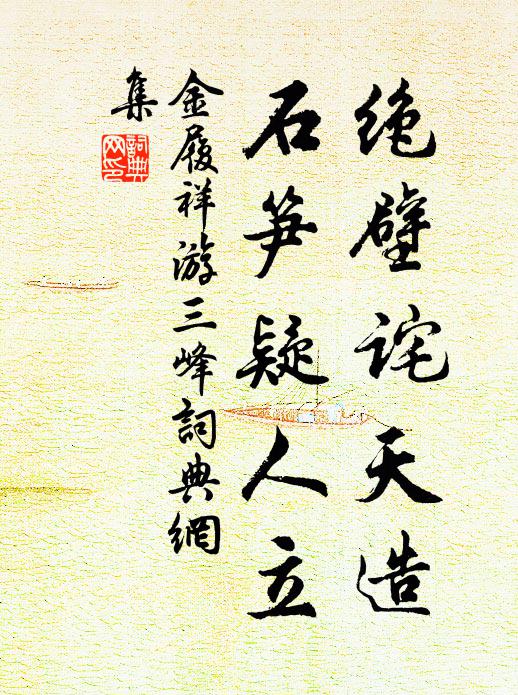 绝壁诧天造
石笋疑人立
金履祥游三峰詞典網
集
詞典网印